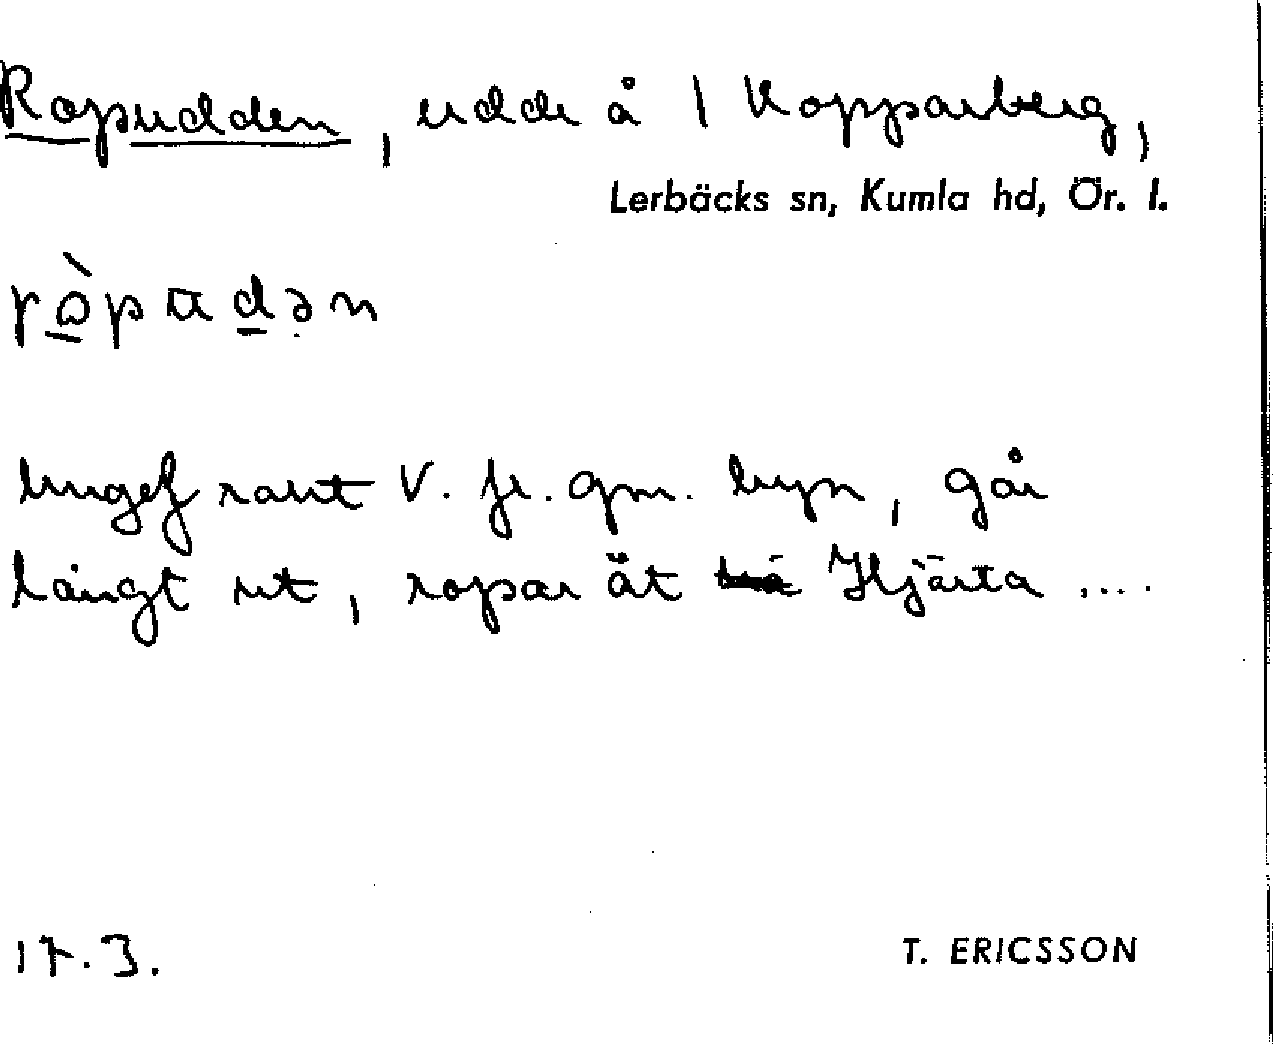 Ropudden, udde å 1 Kopparberg,
Lerbäcks sn, Kumla hd, Ör. l.
Ungef rakt V. fr. gm. byn, går
långt ut, ropar åt Hjärta ....
17.3.
T. ERICSSON